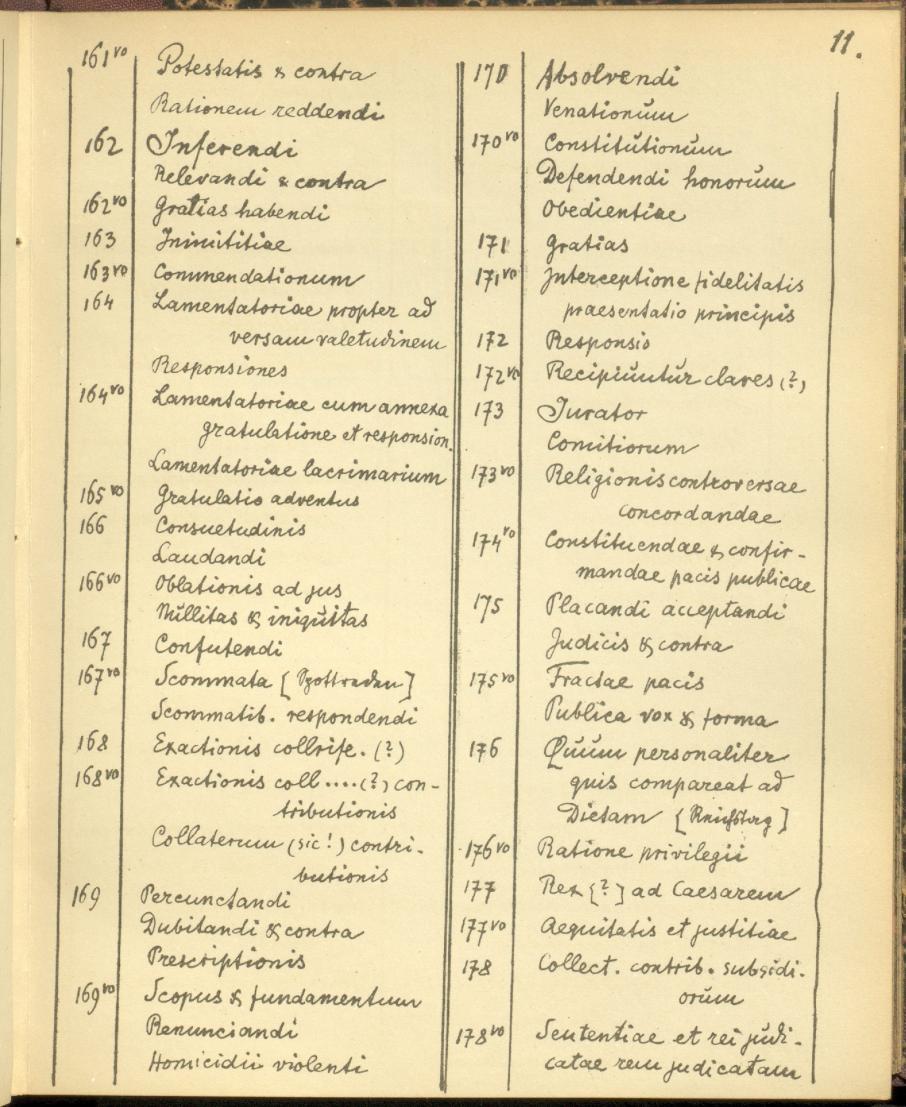 11.
161vo Potestatis & contra
Rationem reddendi
162 Inferendi
Relevandi & contra
162vo Gratias habendi
163 Inimititiae
163vo Commendationum
164 Lamentatoriae propter ad
versam valetudinem
Responsiones
164vo Lamentatoriae cum annexa
gratulatione et responsion.
Lamentatoriae lacrimarium
165vo Gratulatio adventus
166 Consuetudinis
Laudandi
166vo Oblationis ad jus
Nullitas & iniquitas
167 Confutendi
167vo Scommata [Spottreden]
Scommatib. respondendi
168 Exactionis collrife. (?)
168vo Exactionis coll....(?) con-
tributionis
Collaterum (sic!) contri-
butionis
169 Percunctandi
Dubitandi & contra
Prescriptionis
169vo Scopus & fundamentum
Renunciandi
Homicidii violenti
170 Absolvendi
Venationum
170vo Constitutionum
Defendendi honorum
Obedientiae
171 Gratias
171vo Interceptione fidelitatis
praesentatio principis
172 Responsio
172vo Recipiuntur claves (?)
173 Jurator
Comitiorum
173vo Religionis controversae
concordandae
174vo Constituendae & confir-
mandae pacis publicae
175 Placandi acceptandi
Judicis & contra
175vo Fractae pacis
Publica vox & forma
176 Quum personaliter
quis compareat ad
Dietam [Reichstag]
176vo Ratione privilegii
177 Rex [?] ad Caesarem
177vo Aequitatis et justitiae
178 Collect. contrib. subsidi-
orum
178vo Sententiae et rei judi-
catae rem judicatam